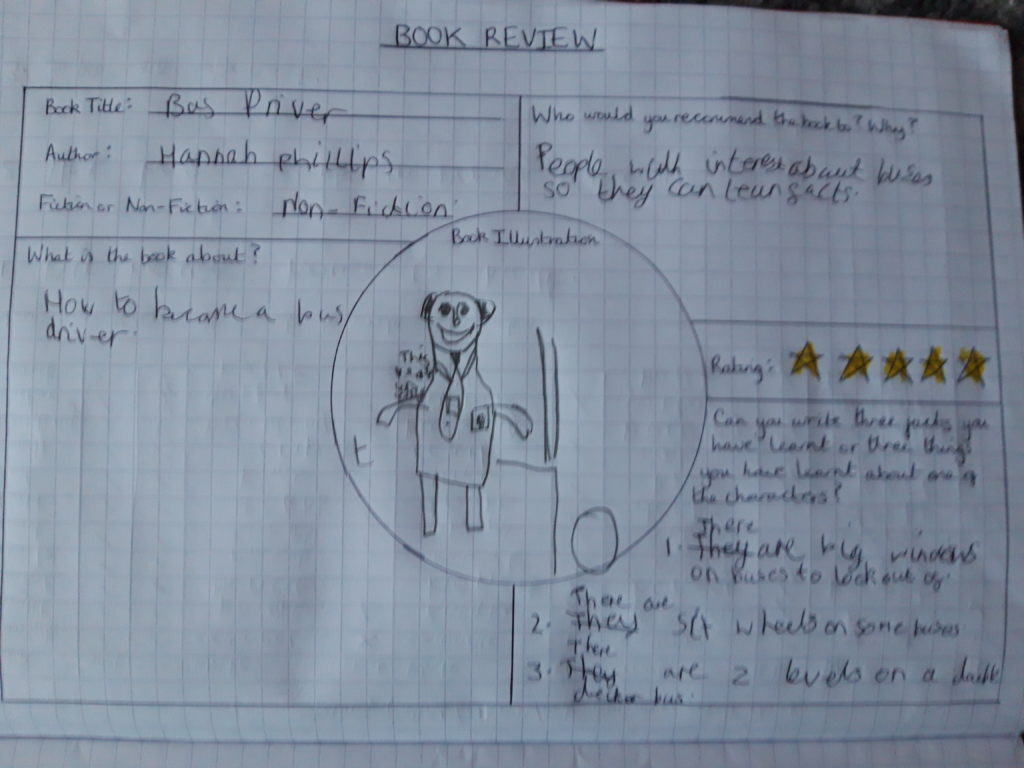 BOOK REVIEW
Book Title: Bus Driver
Author: Hannah phillips
Fiction or Non-Fiction: Non-Fiction
What is the book about?
How to became a bus
driver.
Book Illustration
Who would you recommend the book to? Why?
People with interest about buses
so they can learn facts.
Rating:
Can you write three facts you
have learnt or three things
you have learnt about one of
the characters?
There
1. They are big windows
on buses to look out of.
There are
2. They six wheels on some buses
There
3. They are 2 levels on a
decker bus.
t